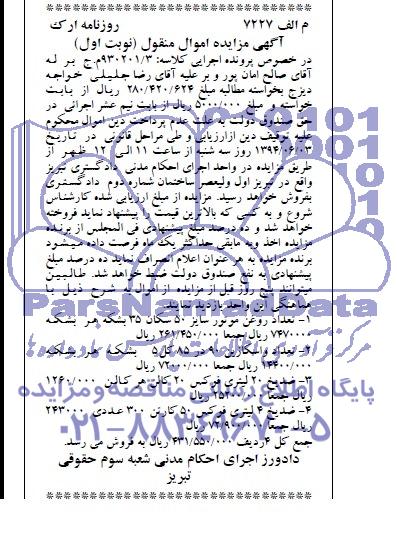 م الف ۷۲۲۷ روزنامه ارک
آگهی مزایده اموال منقول (نوبت اول)
در خصوص پرونده اجرایی کلاسه: ۹۳۰۲۰۱/۳م.ج بر له
آقای صالح امان پور و بر علیه آقای رضا جلیلی خواجه
دیزج بخواسته مطالبه مبلغ ۲۸۰/۴۲۰/۶۲۴ ریال از بابت
خواسته و مبلغ ۵۰۰۰/۰۰۰ ریال از بابت نیم عشر اجرائی در
حق صندوق دولت به علت عدم پرداخت دین اموال محکوم
علیه توقیف دین ازارزیابی و طی مراحل قانونی در تاریخ
۱۳۹۴/۰۶/۰۳ روز سه شنبه از ساعت ۱۱ الی ۱۲ ظهر از
طریق مزایده در واحد اجرای احکام مدنی دادگستری تبریز
واقع در تبریز اول ولیعصر ساختمان شماره دوم دادگستری
بفروش خواهد رسید. مزایده از مبلغ ارزیابی شده کارشناس
شروع و به کسی که بالاترین قیمت را پیشنهاد نماید فروخته
خواهد شد و ده درصد مبلغ پیشنهادی فی المجلس از برنده
مزایده اخذ وبه مابقی حداکثر یک ماه فرصت داده میشود
برنده مزایده به هر عنوان اعلام انصراف نماید ده درصد مبلغ
پیشنهادی به نفع صندوق دولت ضبط خواهد شد. طالبین
میتوانند پنج روز قبل از مزایده از اموال به شرح ذیل با
هماهنگی این واحد بازدید نمایند.
۱- تعداد روغن موتور سایز ۵۰ سکان ۳۵ بشکه هر بشکه
۷۴۷۰۰۰۰ ریال جمعا ۲۶۱/۴۵۰/۰۰۰ ریال
۲- تعداد واسکازین ۹۰ در ۸۵ کل ۵ بشکه هر بشکه
۱۴۴۰۰/۰۰۰ ریال جمعا ۷۲/۰۰۰/۰۰۰ ریال
۳- ضدیخ ۲۰ لیتری فوکس ۲۰ گالن هر گالن ۱۲۶۰/۰۰۰
ریال جمعا ۲۵۲۰۰/۰۰۰ ریال
۴- ضدیخ ۴ لیتری فوکس ۵۰ کارتن ۳۰۰ عددی ۲۴۳۰۰۰
ریال جمعا ۷۲/۹۰۰/۰۰۰ ریال
جمع کل ۴ردیف ۴۳۱/۵۵۰/۰۰۰ ریال به فروش می رسد.
دادورز اجرای احکام مدنی شعبه سوم حقوقی
تبریز
ParsNamadData
پایگاه اطلاع رسانی مناقصه و مزایده
۰۲۱-۸۸۳۴۹۶۷۰-۵